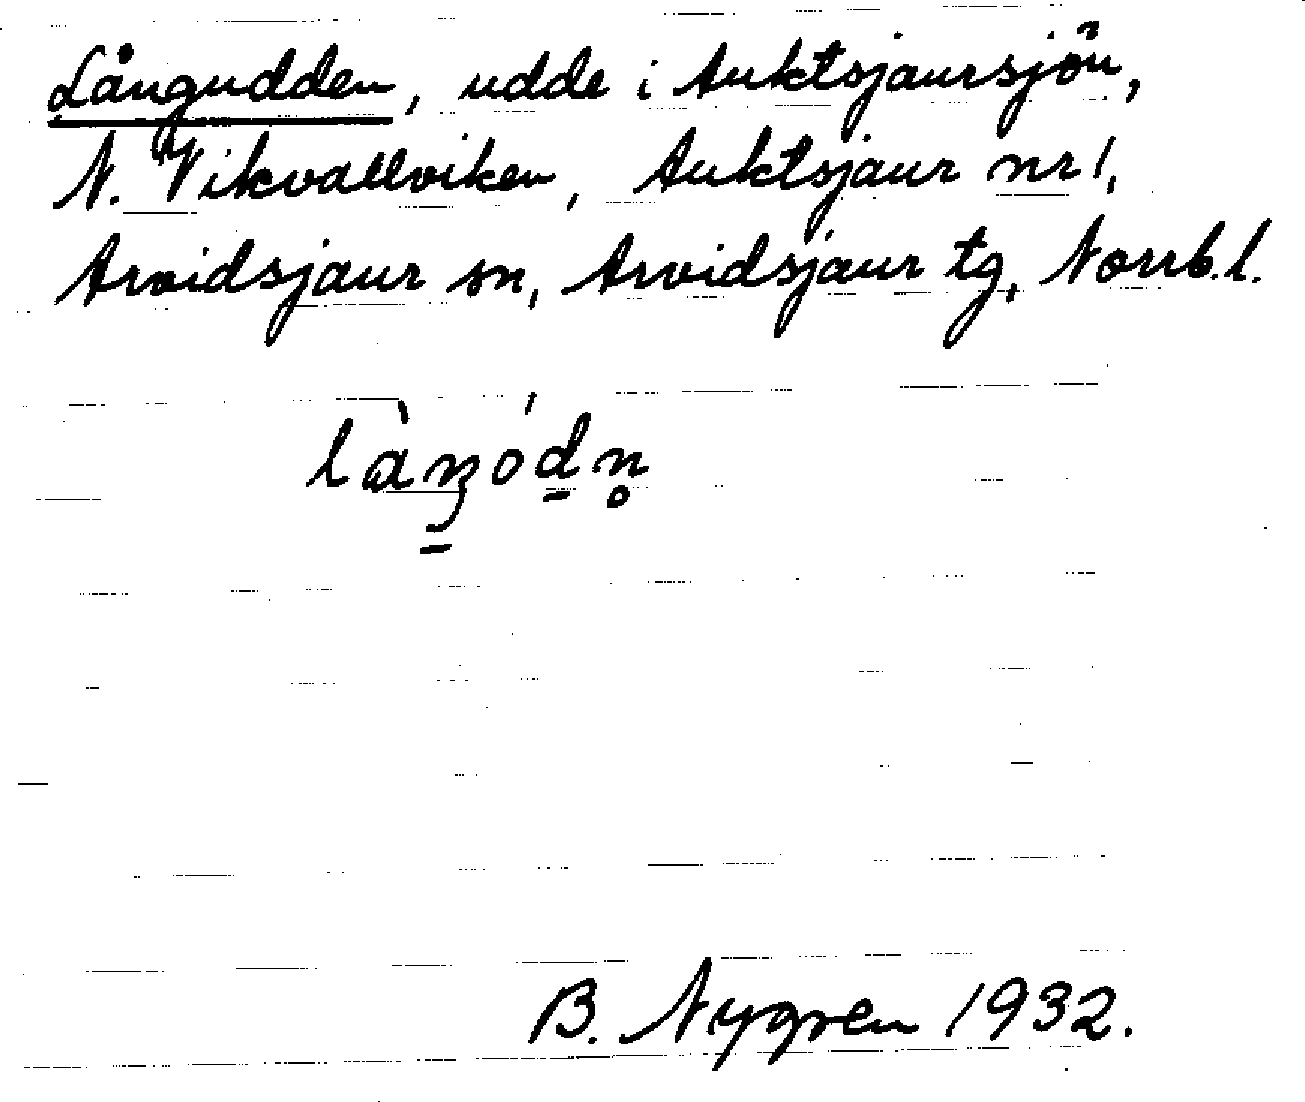 Långudden, udde i Auktsjaursjön,
N. Vikvallviken, Auktsjaur nr 1,
Arvidsjaur sn, Arvidsjaur tg, Norrb. l.
B. Nygren 1932.